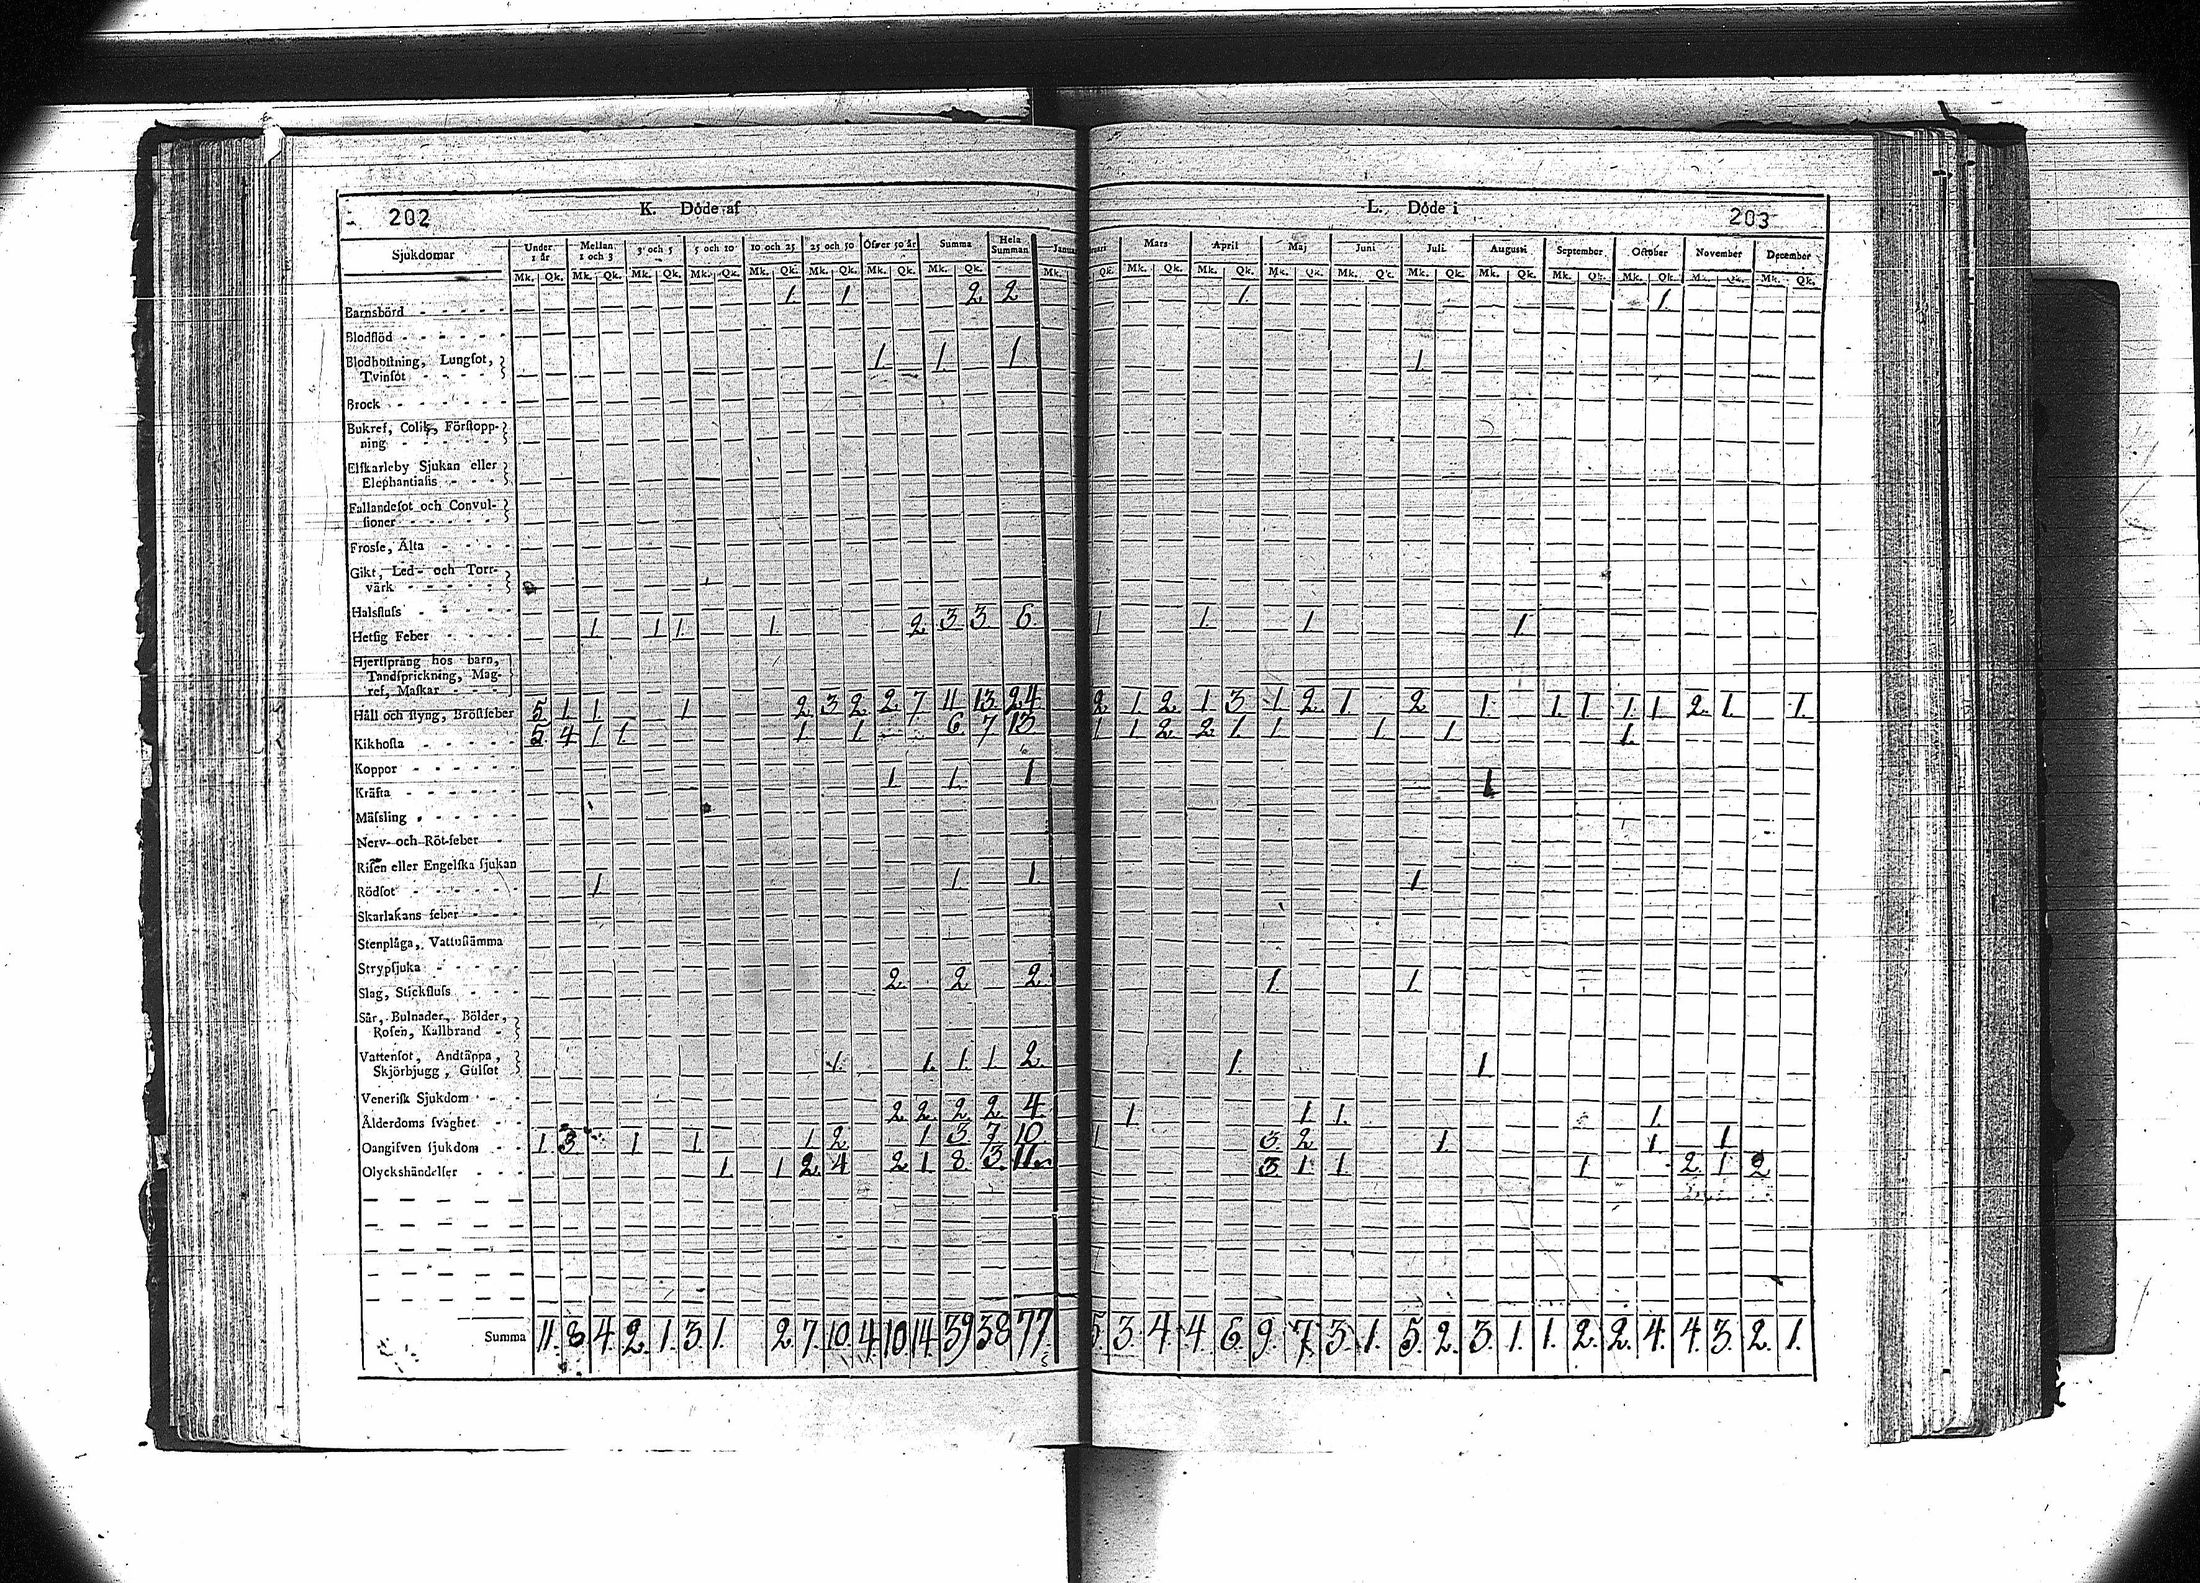 202 K. Döde af
Sjukdomar Under 1 år Mellan 1 och 3 3 och 5 5 och 10 10 och 25 25 och 50 Öfver 50 år Summa Hela Summan
Mk. Qk. Mk. Qk. Mk. Qk. Mk. Qk. Mk. Qk. Mk. Qk. Mk. Qk. Mk. Qk.
Barnsbörd 1. 1 2 2
Blodflöd
Blodhoſtning, Lungſot, 1. 1. 1
Tvinſot
Brock
Bukref, Colik, Förſtopp-
ning
Elfkarleby Sjukan eller
Elephantiaſis
Fallandeſot och Convul-
ſioner
Froſſe, Älta
Gikt, Led- och Torr-
värk
Halsfluſs
Hetſig Feber 1 1 1. 1. 2 3 3 6.
Hjertſprång hos barn,
Tandſprickning, Mag-
ref, Maſkar
Håll och ſtyng, Bröſtfeber 5 1 1 1 2 3 2 2 7 11 13 24
Kikhoſta 5 4 1 1. 1 1. 6 7 13
Koppor
Kräfta 1 1. 1
Mäſsling
Nerv- och Röt-feber
Riſen eller Engelſka ſjukan
Rödſot 1 1 1.
Skarlakans feber
Stenplåga, Vattuſtämma
Strypſjuka
Slag, Stickfluſs 2. 2 2
Sår, Bulnader, Bölder,
Roſen, Kallbrand
Vattenſot, Andtäppa, 1. 1. 1. 1. 2.
Skjörbjugg, Gulſot
Veneriſk Sjukdom
Ålderdoms ſvaghet 2 2 2 2 4
Oangifven ſjukdom 1. 3. 1 1. 1 2 1 3 7 10
Olyckshändelſer 1 1 2. 4 2 1 8. 3. 11
Summa 11. 8. 4. 2. 1. 3. 1. 2. 7. 10. 4 10 14. 39 38 77.
L. Döde i 203
Mars April Maj Juni Juli Auguſti September October November December
Mk. Qk. Mk. Qk. Mk. Qk. Mk. Qk. Mk. Qk. Mk. Qk. Mk. Qk. Mk. Qk. Mk. Qk. Mk. Qk. Mk. Qk.
1. 1.
1.
1 1. 1 1
2 1 2 1 3 1 2 1 2 1 1. 1 1 1 2. 1. 1.
1 1 2 2 1 1 1 1 1.
1
1
1. 1.
1. 1
1 1 1. 1.
1 3. 2 1. 1. 1
3 1 1. 1 2 1 2
5. 3. 4. 4. 6. 9. 7. 3. 1. 5. 2. 3. 1. 1. 2. 2. 4. 4. 3. 2. 1.